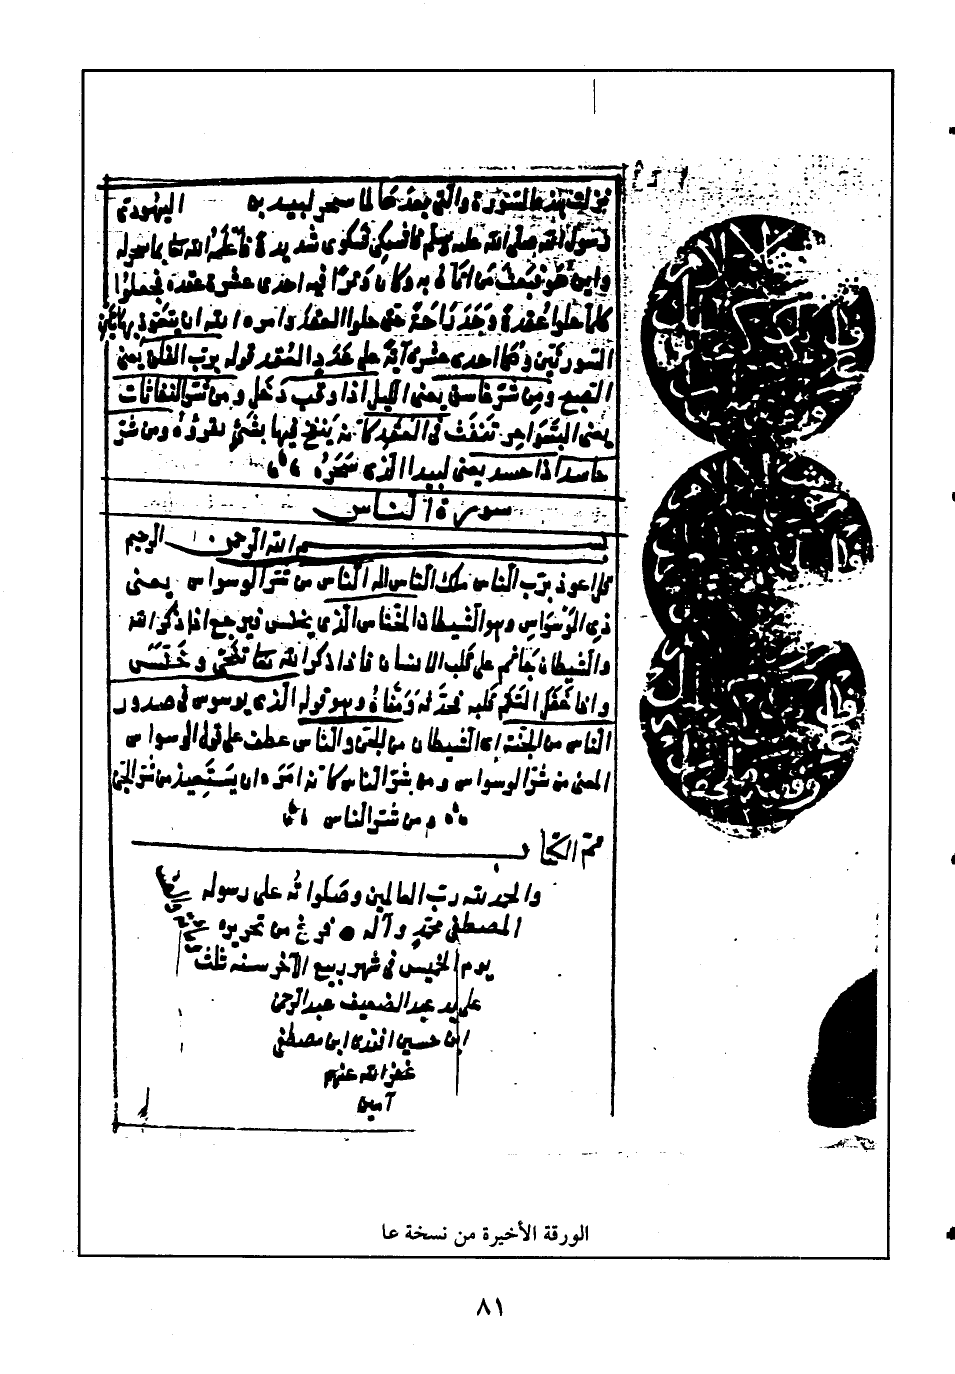 نزلت هذه السورة والتي بعدها لما سحر لبيد اليهودي
رسول الله صلى الله عليه وسلم فاشتكى شكوى شديدة فأعلمه الله تعالى بما سحره
واين هو فبعث من اتاه به وكان وترا فيه احدى عشرة عقدة فجعلوا
كلما حلوا عقدة وجد راحة حتى حلوا العقد وامره الله ان يتعوذ بهاتين
السورتين وهما احدى عشرة آية على عدد العقد قوله برب الفلق يعني
الصبح ومن شر غاسق يعني الليل اذا وقب دخل ومن شر النفاثات
يعني السواحر تنفث في العقد كانه ينفخ فيها بشئ يقرؤه ومن شر
حاسد اذا حسد يعني لبيد الذي سحره
سورة الناس
بسم الله الرحمن الرحيم
قل اعوذ برب الناس ملك الناس اله الناس من شر الوسواس يعني
ذي الوسواس وهو الشيطان الخناس الذي يخنس فيرجع اذا ذكر الله
والشيطان جاثم على قلب الانسان فاذا ذكر الله تعالى تنحى وخنس
واذا غفل التقم قلبه فحدثه ومناه وهو قوله الذي يوسوس في صدور
الناس من الجنة اي الشيطان من الجن والناس عطف على قوله الوسواس
المعنى من شر الوسواس ومن شر الناس كانه امره ان يستعيذ من شر الجن
ومن شر الناس
تمم الكتاب
والحمد لله رب العالمين وصلواته على رسوله
المصطفى محمد وآله فرغ من تحريره
يوم الخميس في شهر ربيع الآخر سنه ثلث
على يد عبد الضعيف عبد الرحمن
ابن حسين افندى ابن مصطفى
غفر الله عنهم
آمين
الورقة الأخيرة من نسخة عا
٨١